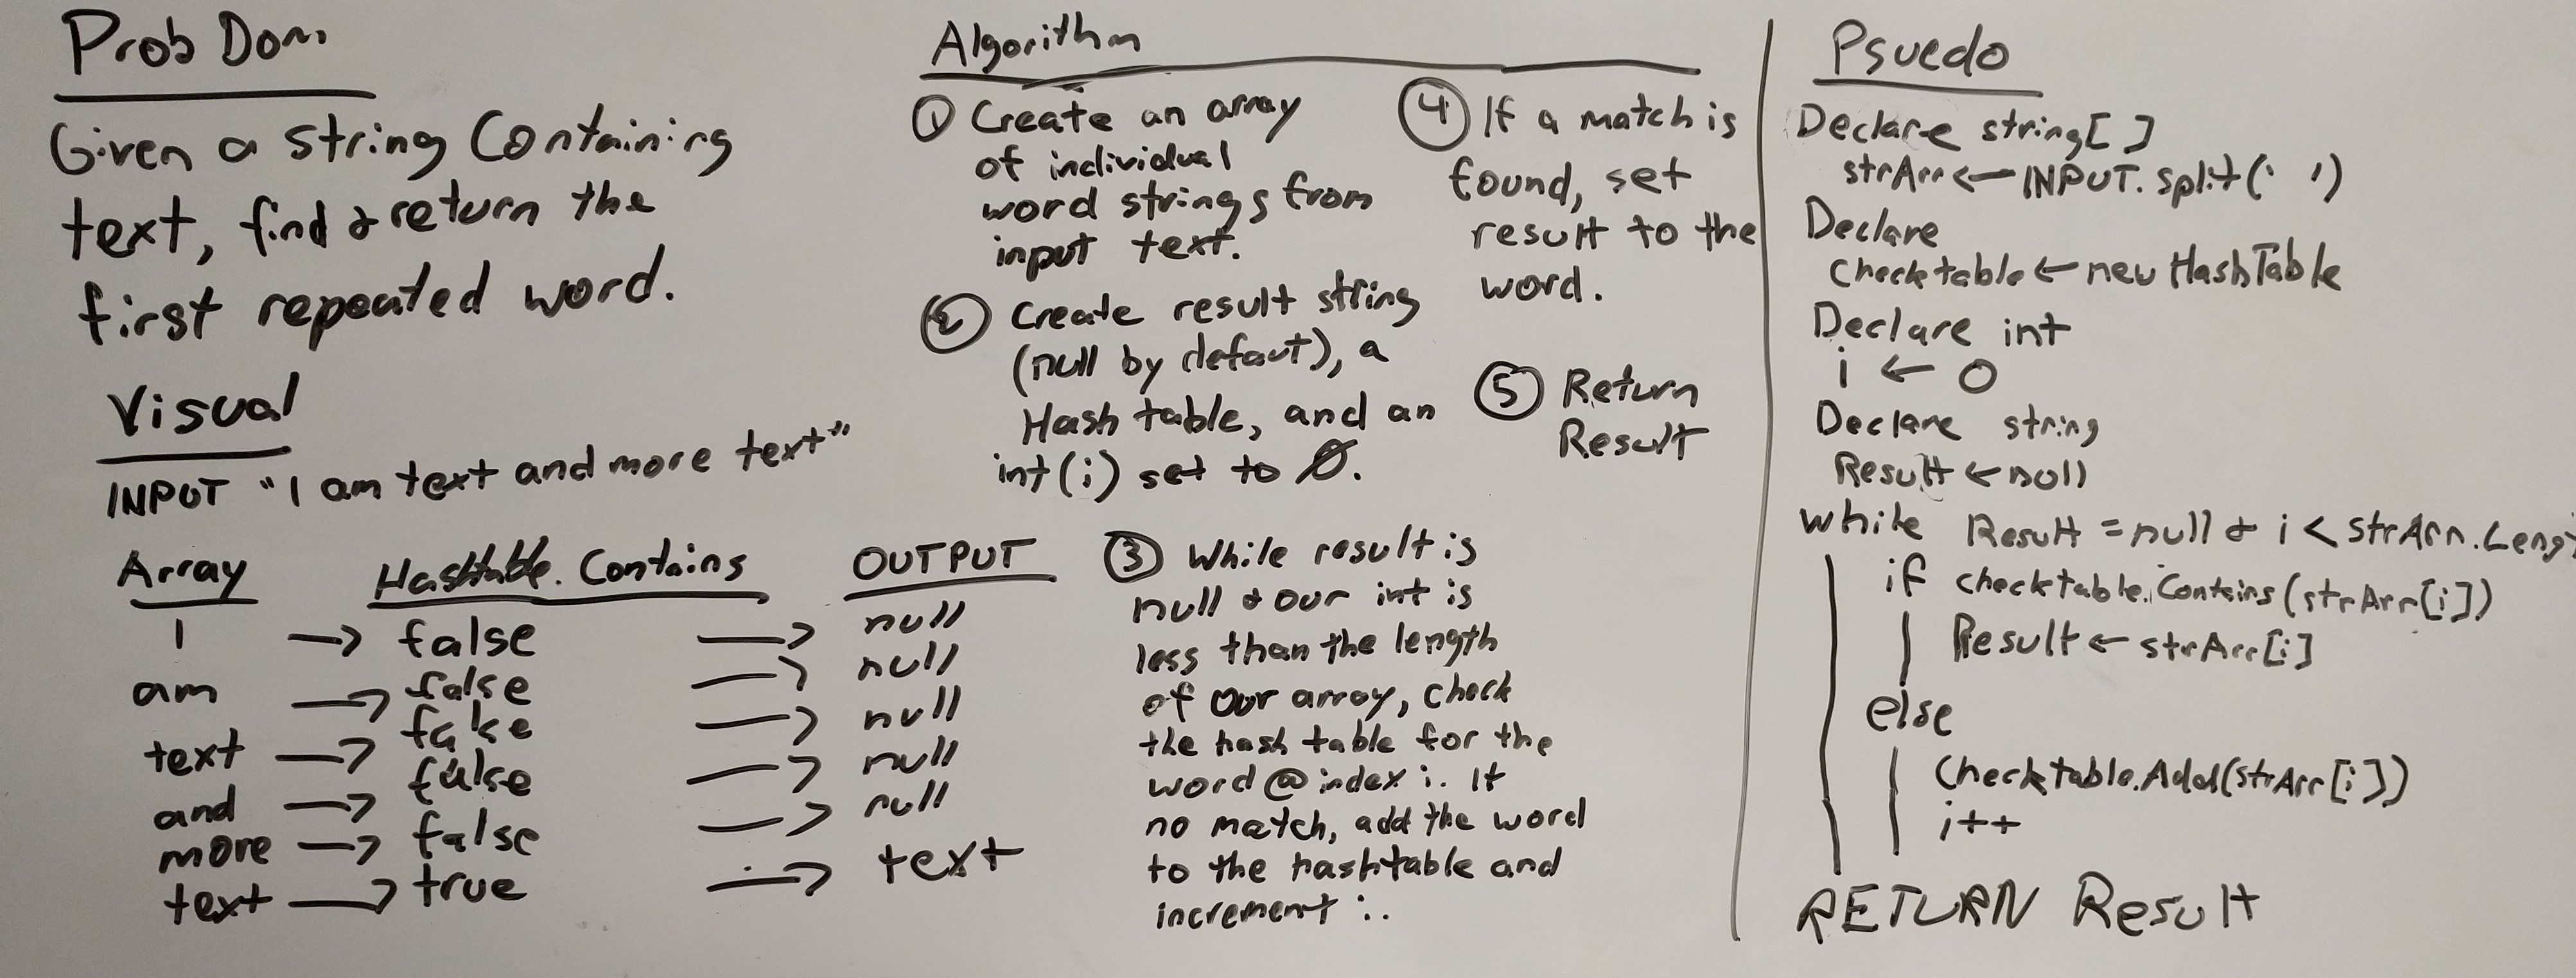 Prob Dom
Given a string Containing
text, find & return the
first repeated word.
Visual
INPUT "I am text and more text"
Array Hashtable.Contains OUTPUT
I → false → null
am → false → null
text → false → null
and → false → null
more → false → null
text → true → text
Algorithm
① Create an array
of individual
word strings from
input text.
② Create result string
(null by defaut), a
Hash table, and an
int(i) set to 0.
③ While result is
null & our int is
less than the length
of our array, check
the hash table for the
word @ index i. If
no match, add the word
to the hashtable and
increment i.
④ If a match is
found, set
result to the
word.
⑤ Return
Result
Psuedo
Declare string[]
strArr ← INPUT.split(' ')
Declare
checktable ← new HashTable
Declare int
i ← 0
Declare string
Result ← null
while Result = null & i < strArr.Leng
if checktable.Contains(strArr[i])
Result ← strArr[i]
else
Checktable.Add(strArr[i])
i++
RETURN Result